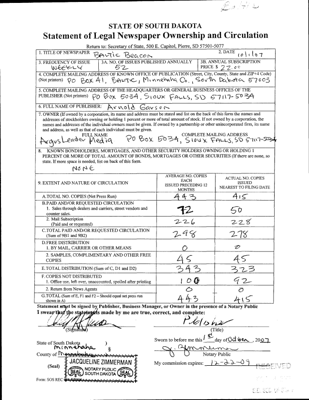 STATE OF SOUTH DAKOTA
Statement of Legal Newspaper Ownership and Circulation
Return to: Secretary of State, 500 E. Capitol, Pierre, SD 57501-5077
1. TITLE OF NEWSPAPER Baltic Beacon 2. DATE 10/1/07
3. FREQUENCY OF ISSUE WEEKLY 3A. NO. OF ISSUES PUBLISHED ANNUALLY 52 3B. ANNUAL SUBSCRIPTION PRICE $ 22.00
4. COMPLETE MAILING ADDRESS OF KNOWN OFFICE OF PUBLICATION (Street, City, County, State and ZIP+4 Code)
(Not printers) PO Box 41, Baltic, Minnehaha Co., South Dakota 57003
5. COMPLETE MAILING ADDRESS OF THE HEADQUARTERS OR GENERAL BUSINESS OFFICES OF THE
PUBLISHER (Not printers) PO Box 5034, Sioux Falls, SD 57117-5034
6. FULL NAME OF PUBLISHER: Arnold Garson
7. OWNER (If owned by a corporation, its name and address must be stated and list on the back of this form the names and
addresses of stockholders owning or holding 1 percent or more of total amount of stock. If not owned by a corporation, the
names and addresses of the individual owners must be given. If owned by a partnership or other unincorporated firm, its name
and address, as well as that of each individual must be given.
FULL NAME COMPLETE MAILING ADDRESS
Argus Leader Media PO Box 5034, Sioux Falls, SD 57117-5034
8. KNOWN BONDHOLDERS, MORTGAGES, AND OTHER SECURITY HOLDERS OWNING OR HOLDING 1
PERCENT OR MORE OF TOTAL AMOUNT OF BONDS, MORTGAGES OR OTHER SECURITIES (If there are none, so
state. If more space is needed, list on back of this form.
NONE
9. EXTENT AND NATURE OF CIRCULATION
AVERAGE NO. COPIES EACH ISSUED PRECEDING 12 MONTHS
ACTUAL NO. COPIES ISSUED NEAREST TO FILING DATE
A. TOTAL NO. COPIES (Net Press Run) 443 415
B. PAID AND/OR REQUESTED CIRCULATION
1. Sales through dealers and carriers, street vendors and
counter sales. 72 50
2. Mail Subscription
(Paid and/or requested) 226 228
C. TOTAL PAID AND/OR REQUESTED CIRCULATION
(Sum of 9B1 and 9B2) 298 278
D. FREE DISTRIBUTION
1. BY MAIL, CARRIER OR OTHER MEANS 0 0
2. SAMPLES, COMPLIMENTARY AND OTHER FREE
COPIES 45 45
E. TOTAL DISTRIBUTION (Sum of C, D1 and D2) 343 323
F. COPIES NOT DISTRIBUTED
1. Office use, left over, unaccounted, spoiled after printing 100 92
2. Return from News Agents 0 0
G. TOTAL (Sum of E, F1 and F2 - Should equal net press run
shown in A) 443 415
Statement must be signed by Publisher, Business Manager, or Owner in the presence of a Notary Public
I swear that the statements made by me are true, correct, and complete:
(Signature) (Title)
State of South Dakota )
County of Minnehaha )
Sworn to before me this 1st day of October, 2007
J. Zimmerman
Notary Public
(Seal)
JACQUELINE ZIMMERMAN
NOTARY PUBLIC
SOUTH DAKOTA
SEAL
My commission expires: 12-22-09
RECEIVED